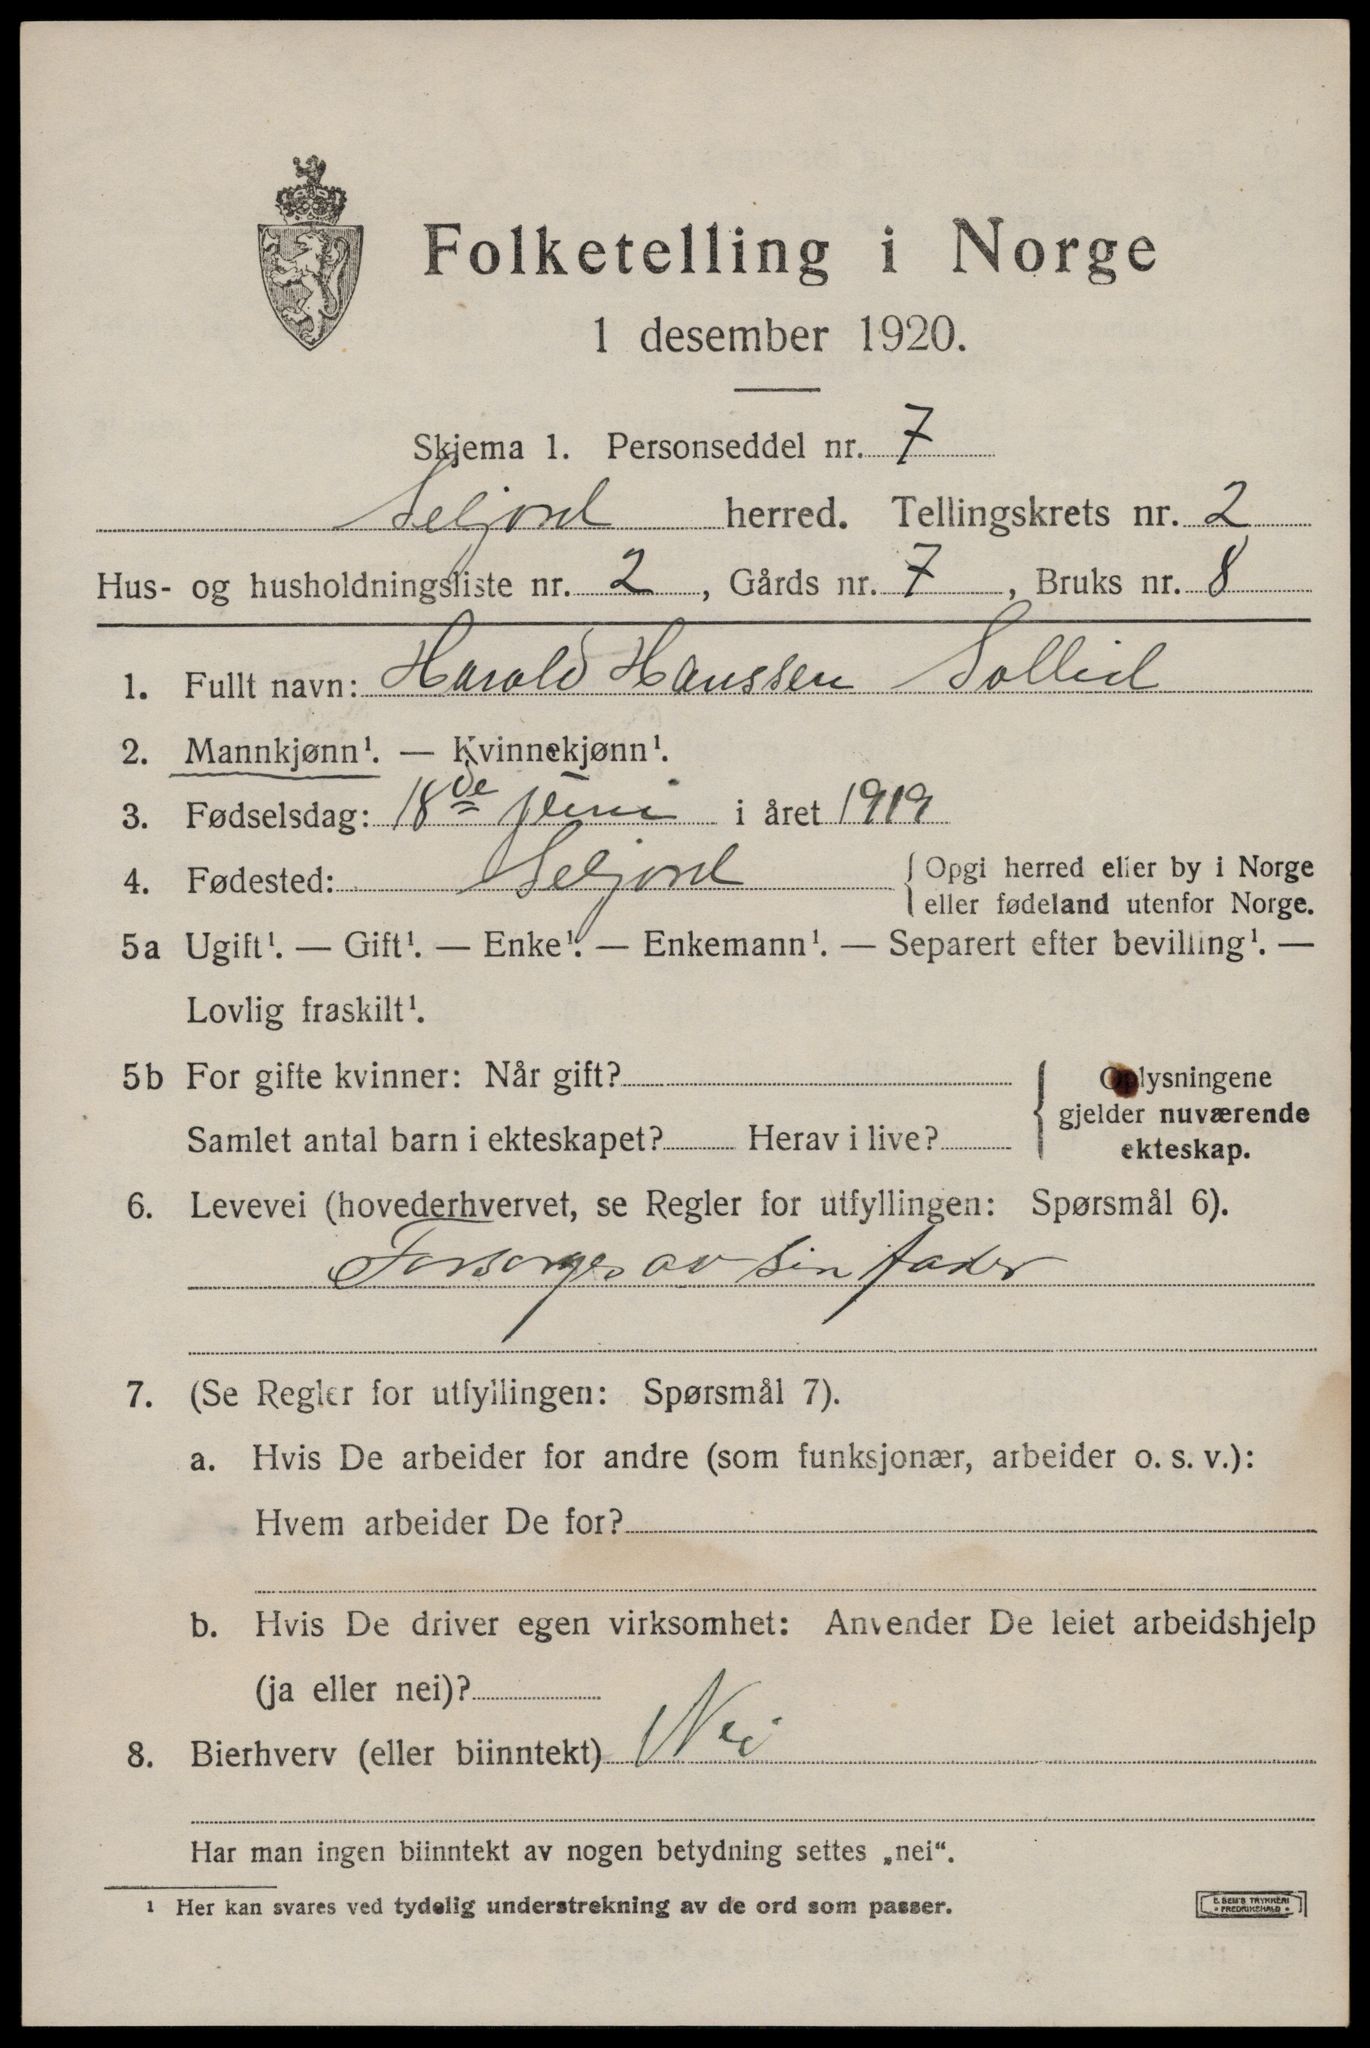 Folketelling i Norge
1 desember 1920.
Skjema 1. Personseddel nr. 7
Seljord herred. Tellingskrets nr. 2
Hus- og husholdningsliste nr. 2, Gårds nr. 7, Bruks nr. 8
1. Fullt navn: Harald Hanssen Sollid
2. Mannkjønn¹. — Kvinnekjønn¹.
3. Fødselsdag: 18de juni i året 1919
4. Fødested: Seljord { Opgi herred eller by i Norge
eller fødeland utenfor Norge.
5a Ugift¹. — Gift¹. — Enke¹. — Enkemann¹. — Separert efter bevilling¹. —
Lovlig fraskilt¹.
5b For gifte kvinner: Når gift? { Oplysningene
gjelder nuværende
Samlet antal barn i ekteskapet? Herav i live?
ekteskap.
6. Levevei (hovederhvervet, se Regler for utfyllingen: Spørsmål 6).
Forsørges av sin fader
7. (Se Regler for utfyllingen: Spørsmål 7).
a. Hvis De arbeider for andre (som funksjonær, arbeider o. s. v.):
Hvem arbeider De for?
b. Hvis De driver egen virksomhet: Anvender De leiet arbeidshjelp
(ja eller nei)?
8. Bierhverv (eller biinntekt) Nei
Har man ingen biinntekt av nogen betydning settes „nei“.
¹ Her kan svares ved tydelig understrekning av de ord som passer.
E. SEM'S TRYKKERI
• FREDRIKSHALD •